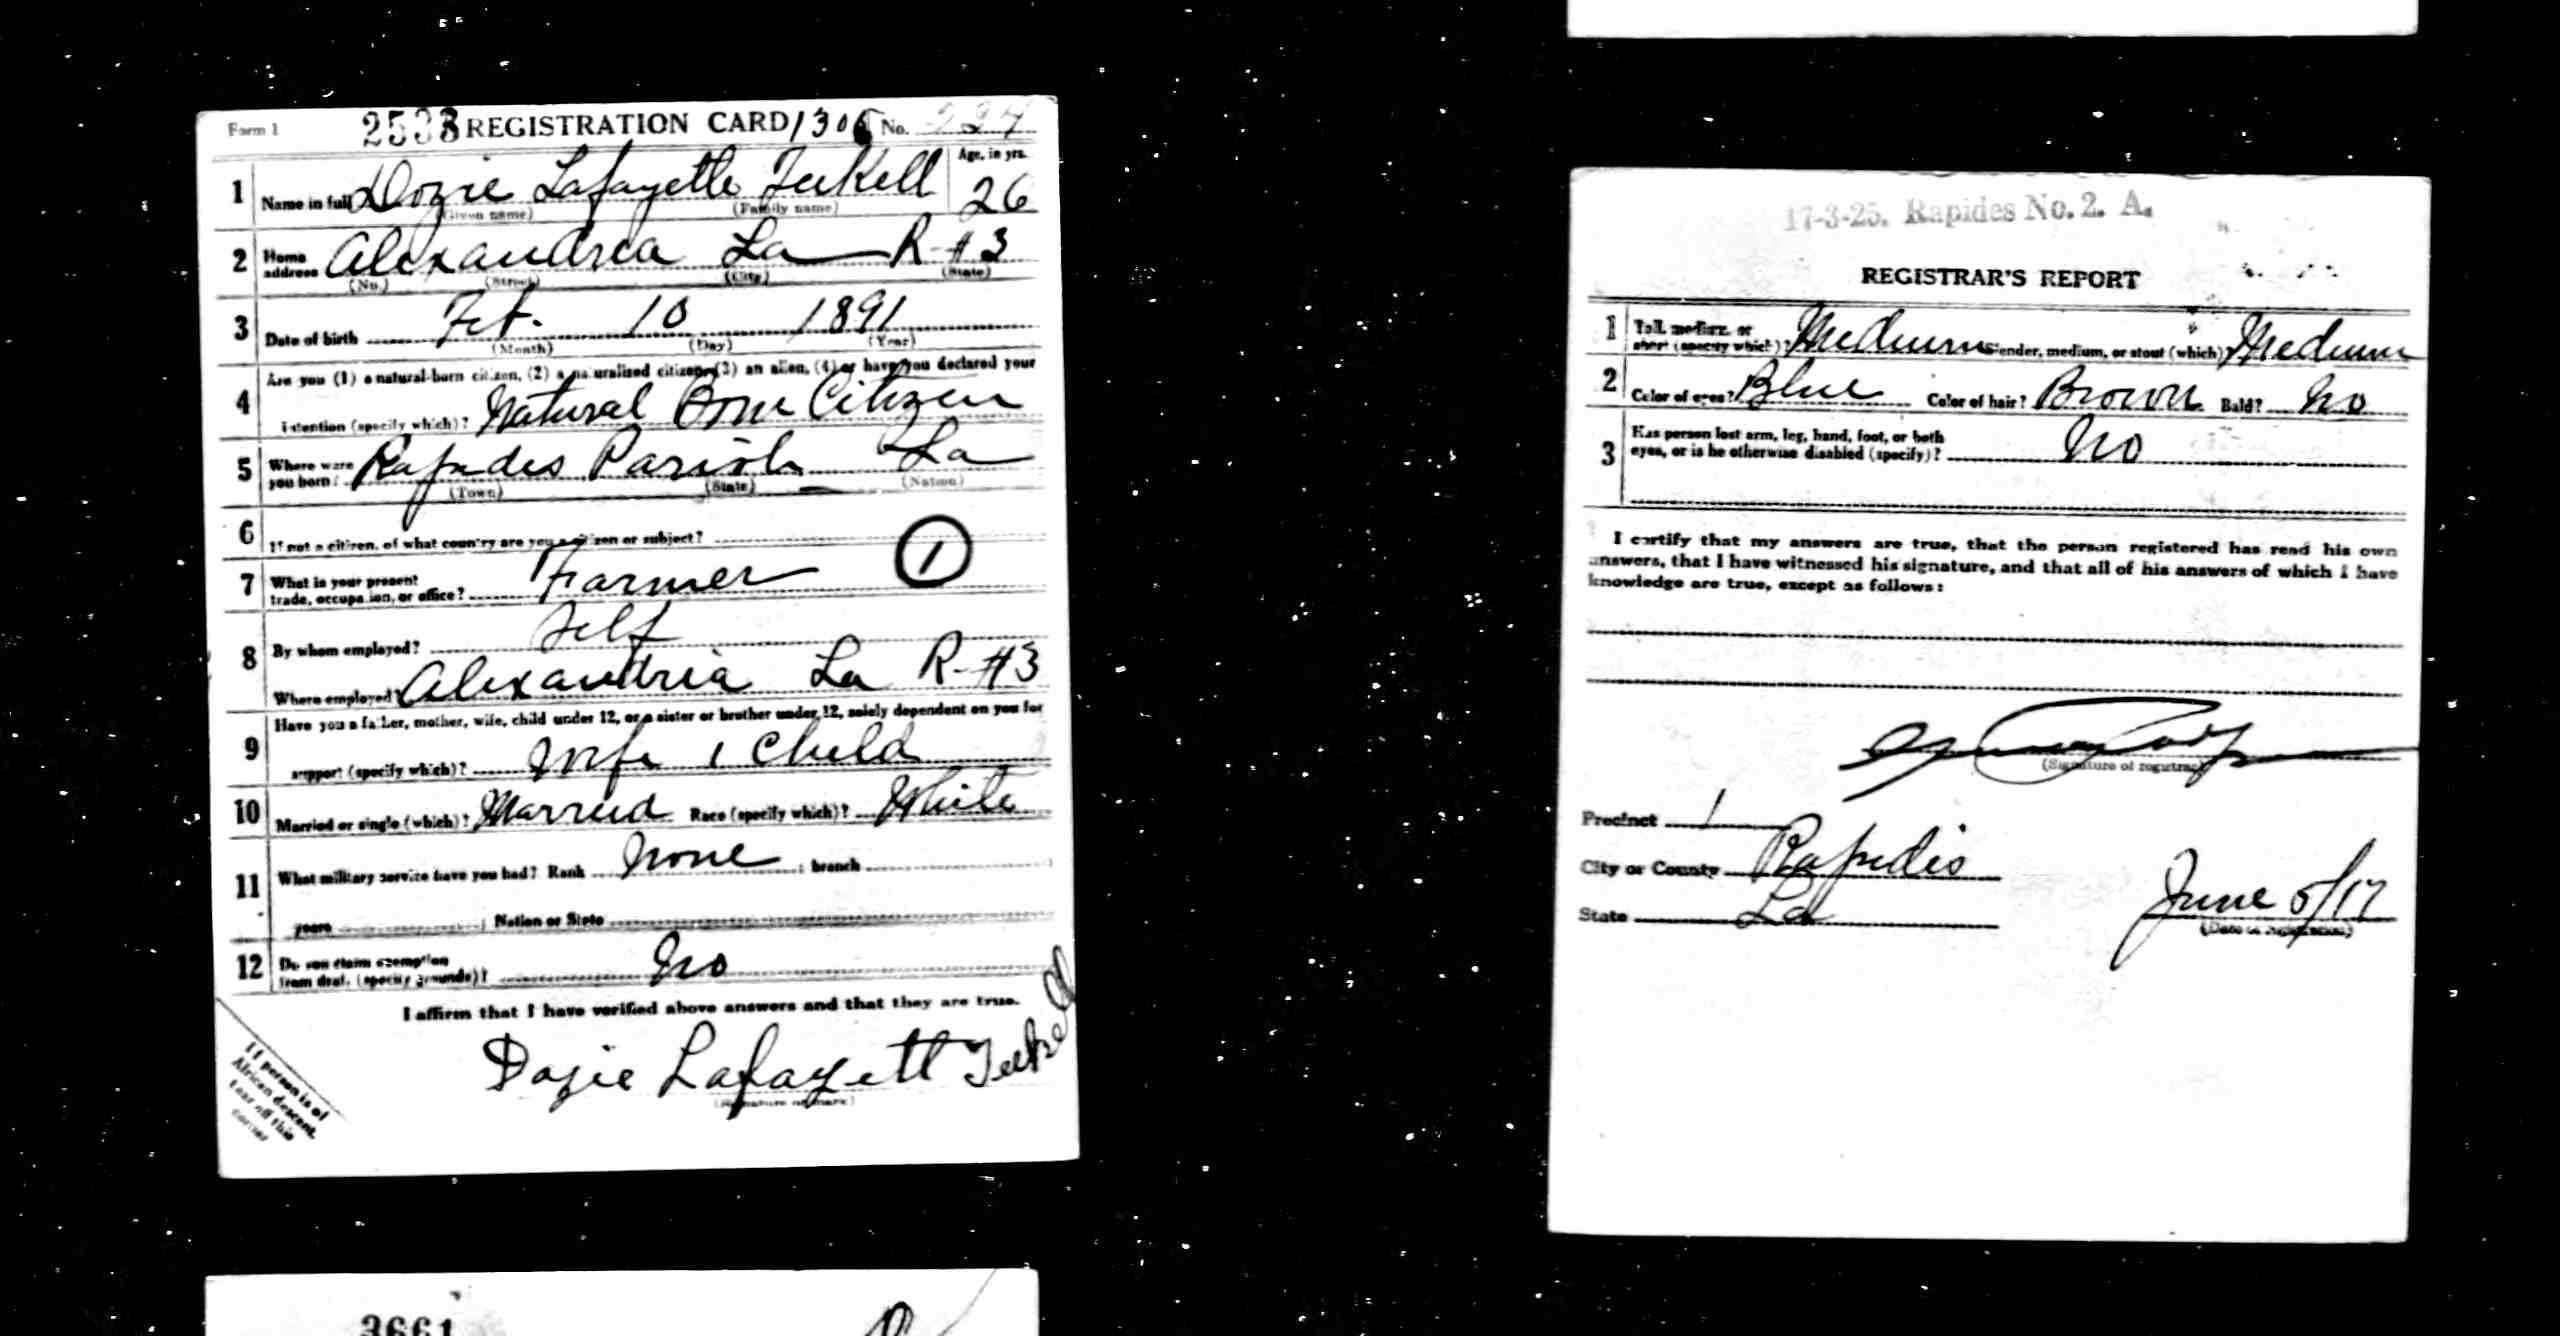 Form 1 2533 REGISTRATION CARD 1306 No. 224
Age, in yrs.
1 Name in full Dozie Lafayette Teekell 26
(Given name) (Family name)
2 Home address Alexandria La R-#3
(No.) (Street) (City) (State)
3 Date of birth Feb. 10 1891
(Month) (Day) (Year)
Are you (1) a natural-born citizen, (2) a naturalized citizen, (3) an alien, (4) or have you declared your
4 intention (specify which)? Natural Born Citizen
5 Where were you born? Rapides Parish La
(Town) (State) (Nation)
6 If not a citizen, of what country are you a citizen or subject?
1
7 What is your present trade, occupation, or office? Farmer
8 By whom employed? Self
Where employed? Alexandria La R-#3
Have you a father, mother, wife, child under 12, or a sister or brother under 12, solely dependent on you for
9 support (specify which)? Wife 1 Child
10 Married or single (which)? Married Race (specify which)? White
11 What military service have you had? Rank None ; branch
years ; Nation or State
12 Do you claim exemption from draft (specify grounds)? No
I affirm that I have verified above answers and that they are true.
Dozie Lafayett Teekell
(Signature or mark)
If person is of
African descent,
tear off this
corner
3661
17-3-25. Rapides No. 2. A.
REGISTRAR'S REPORT
1 Tall, medium, or short (specify which)? Medium Slender, medium, or stout (which)? Medium
2 Color of eyes? Blue Color of hair? Brown Bald? No
3 Has person lost arm, leg, hand, foot, or both
eyes, or is he otherwise disabled (specify)? No
I certify that my answers are true, that the person registered has read his own
answers, that I have witnessed his signature, and that all of his answers of which I have
knowledge are true, except as follows:
(Signature of registrar)
Precinct 1
City or County Rapides
State La
June 5/17
(Date of registration)